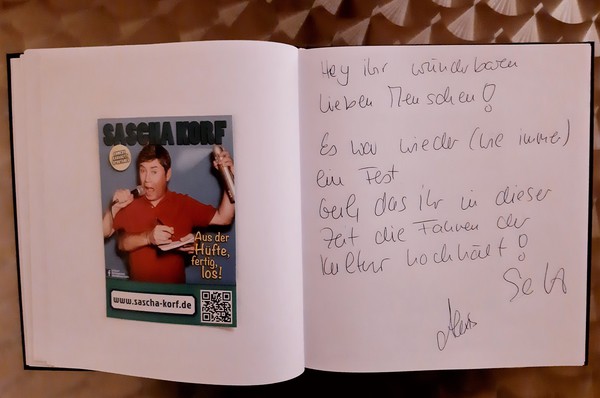 SASCHA KORF
Aus der
Hüfte,
fertig,
los!
www.sascha-korf.de
Hey ihr wunderbaren
lieben Menschen!
Es war wieder (wie immer)
ein Fest
Geil, das ihr in dieser
Zeit die Fahnen der
Kultur hochhält!